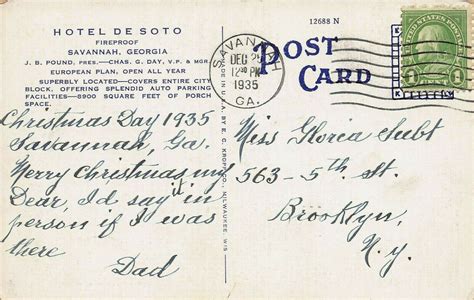 HOTEL DE SOTO
FIREPROOF
SAVANNAH, GEORGIA
J. B. POUND, PRES.—CHAS. G. DAY, V.P. & MGR.
EUROPEAN PLAN, OPEN ALL YEAR
SUPERBLY LOCATED—COVERS ENTIRE CITY
BLOCK, OFFERING SPLENDID AUTO PARKING
FACILITIES—8900 SQUARE FEET OF PORCH
SPACE.
Christmas Day 1935
Savannah, Ga.
Merry Christmas my
Dear, I'd say it in
person if I was
there
Dad
MADE IN U.S.A. BY E. C. KROPP CO., MILWAUKEE, WIS.
12688 N
POST
CARD
SAVANNAH
DEC 25
12 30 PM
1935
GA.
UNITED STATES POSTAGE
1
1
K
K
Miss Gloria Subt
563-5th St.
Brooklyn,
N.Y.